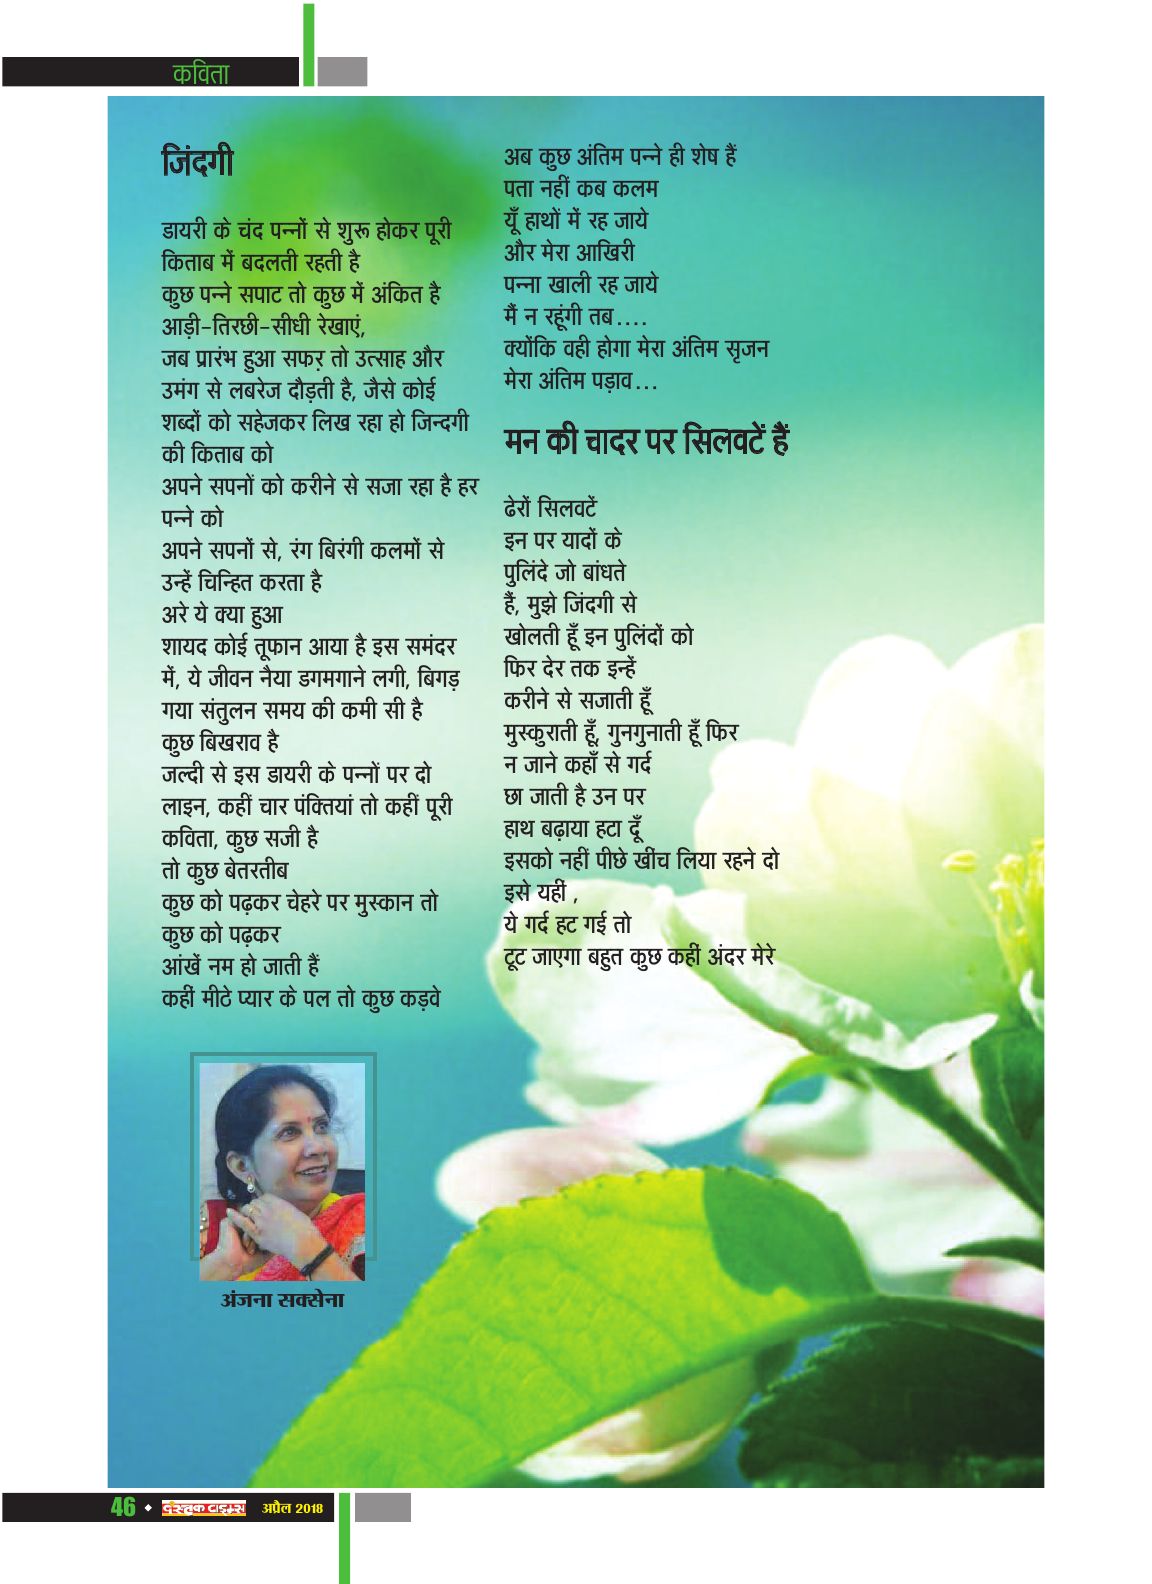 कविता
जिंदगी
डायरी के चंद पन्नों से शुरू होकर पूरी
किताब में बदलती रहती है
कुछ पन्ने सपाट तो कुछ में अंकित है
आड़ी-तिरछी-सीधी रेखाएं,
जब प्रारंभ हुआ सफ़र तो उत्साह और
उमंग से लबरेज दौड़ती है, जैसे कोई
शब्दों को सहेजकर लिख रहा हो जिन्दगी
की किताब को
अपने सपनों को करीने से सजा रहा है हर
पन्ने को
अपने सपनों से, रंग बिरंगी कलमों से
उन्हें चिन्हित करता है
अरे ये क्या हुआ
शायद कोई तूफान आया है इस समंदर
में, ये जीवन नैया डगमगाने लगी, बिगड़
गया संतुलन समय की कमी सी है
कुछ बिखराव है
जल्दी से इस डायरी के पन्नों पर दो
लाइन, कहीं चार पंक्तियां तो कहीं पूरी
कविता, कुछ सजी है
तो कुछ बेतरतीब
कुछ को पढ़कर चेहरे पर मुस्कान तो
कुछ को पढ़कर
आंखें नम हो जाती हैं
कहीं मीठे प्यार के पल तो कुछ कड़वे
अब कुछ अंतिम पन्ने ही शेष हैं
पता नहीं कब कलम
यूँ हाथों में रह जाये
और मेरा आखिरी
पन्ना खाली रह जाये
मैं न रहूंगी तब....
क्योंकि वही होगा मेरा अंतिम सृजन
मेरा अंतिम पड़ाव...
मन की चादर पर सिलवटें हैं
ढेरों सिलवटें
इन पर यादों के
पुलिंदे जो बांधते
हैं, मुझे जिंदगी से
खोलती हूँ इन पुलिंदों को
फिर देर तक इन्हें
करीने से सजाती हूँ
मुस्कुराती हूँ, गुनगुनाती हूँ फिर
न जाने कहाँ से गर्द
छा जाती है उन पर
हाथ बढ़ाया हटा दूँ
इसको नहीं पीछे खींच लिया रहने दो
इसे यहीं ,
ये गर्द हट गई तो
टूट जाएगा बहुत कुछ कहीं अंदर मेरे
अंजना सक्सेना
46 ◆ दस्तक टाइम्स अप्रैल 2018